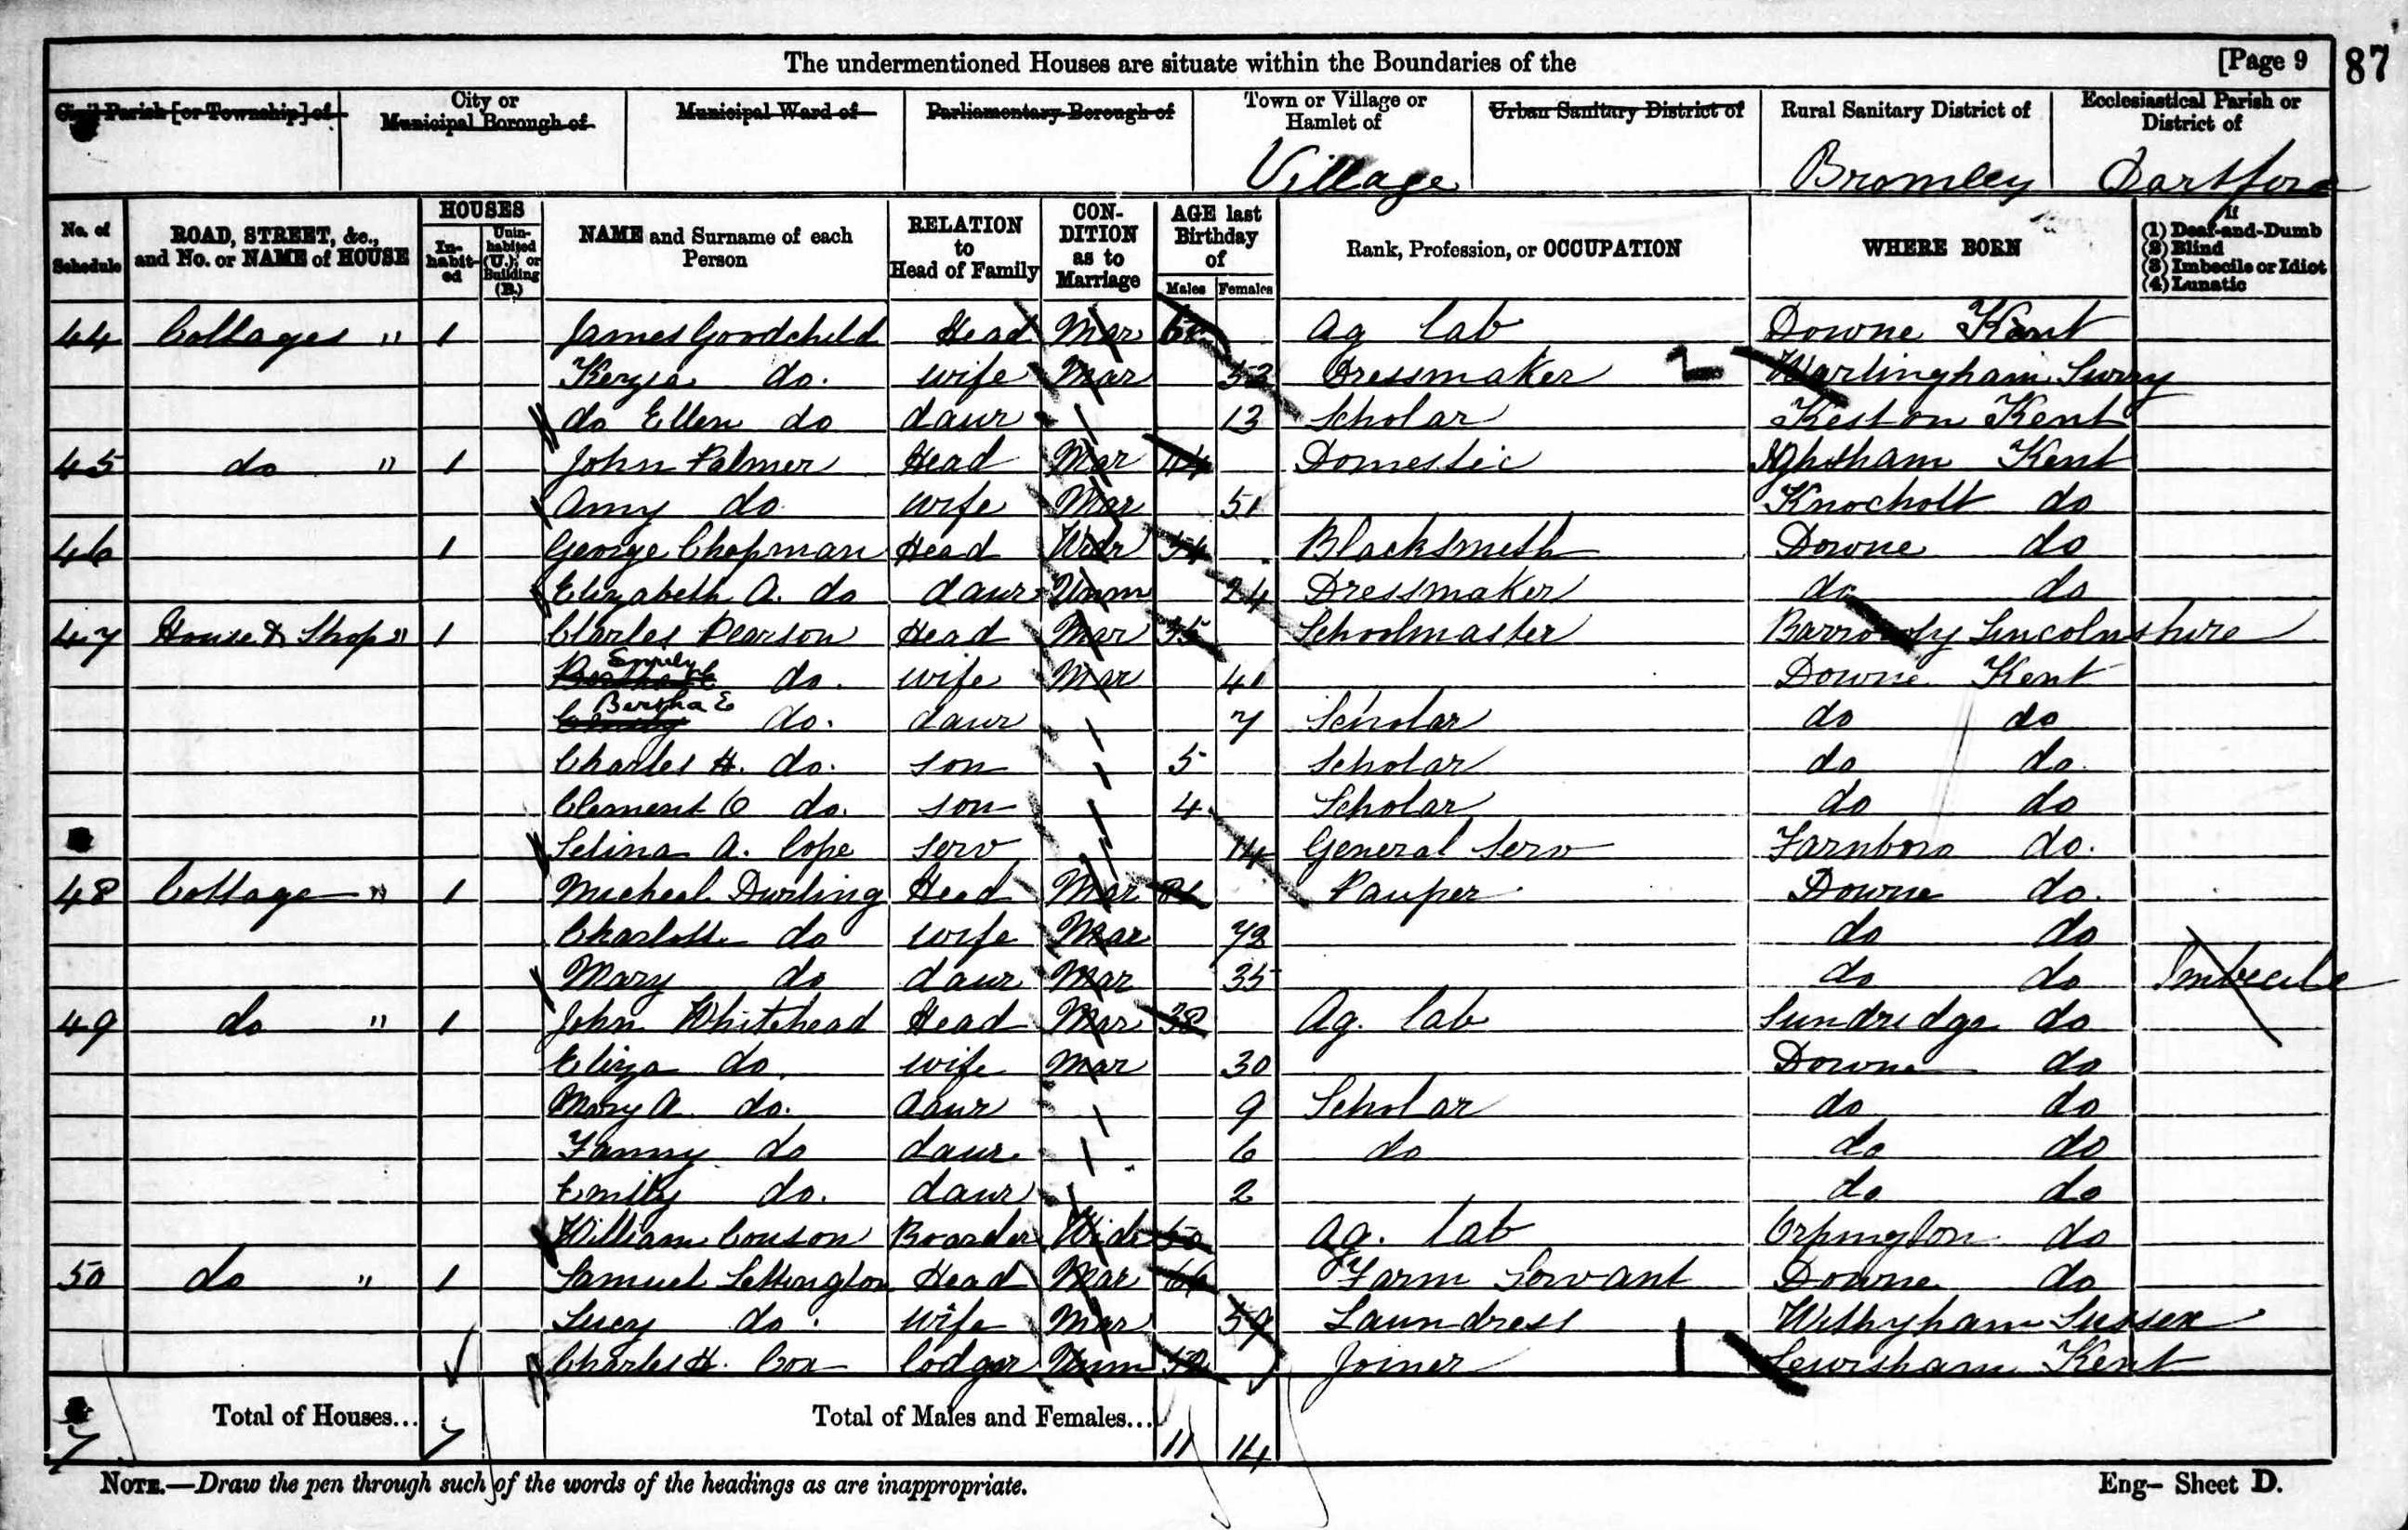 The undermentioned Houses are situate within the Boundaries of the [Page 9 87
Civil Parish [or Township] of City or Municipal Borough of Municipal Ward of Parliamentary Borough of Town or Village or Hamlet of Urban Sanitary District of Rural Sanitary District of Ecclesiastical Parish or District of
Village Bromley Dartford
No. of Schedule ROAD, STREET, &c., and No. or NAME of HOUSE HOUSES Inhabited Uninhabited (U.), or Building (B.) NAME and Surname of each Person RELATION to Head of Family CONDITION as to Marriage AGE last Birthday of Males Females Rank, Profession, or OCCUPATION WHERE BORN If (1) Deaf-and-Dumb (2) Blind (3) Imbecile or Idiot (4) Lunatic
44 Cottages " 1 James Goodchild Head Mar Ag lab Downe Kent
Kezia do. wife Mar 53 Dressmaker 2 Warlingham Surry
do Ellen do daur 13 Scholar Keston Kent
45 do " 1 John Palmer Head Mar 44 Domestic Ightham Kent
Amy do wife Mar 51 Knockolt do
46 1 George Chapman Head Widr 54 Blacksmith Downe do
Elizabeth A. do daur Unm 24 Dressmaker do do
47 House & Shop " 1 Charles Pearson Head Mar 35 Schoolmaster Barrowby Lincolnshire
Bertha E Emily do. wife Mar 41 Downe Kent
Emily Bertha E do. daur 7 Scholar do do
Charles H. do. son 5 Scholar do do.
Clement O do. son 4 Scholar do do
Selina A. Cope serv 14 General Serv Farnboro do.
48 Cottage " 1 Micheal Durling Head Mar 81 Pauper Downe do.
Charlotte do wife Mar 73 do do
Mary do daur Mar 35 do do Imbecile
49 do " 1 John Whitehead Head Mar 38 Ag. lab Sundridge do
Eliza do. wife Mar 30 Downe do
Mary A do. daur 9 Scholar do do
Fanny do daur 6 do do do
Emily do. daur 2 do do
William Couson Boarder Widr 50 Ag. lab Orpington do
50 do " 1 Samuel Lettington Head Mar 66 Farm Servant Downe do
Lucy do. wife Mar 59 Laundress Withyham Sussex
Charles H. Cox lodger Unm 52 Joiner 1 Lewisham Kent
7 Total of Houses... 7 Total of Males and Females... 11 14
NOTE.—Draw the pen through such of the words of the headings as are inappropriate. Eng— Sheet D.